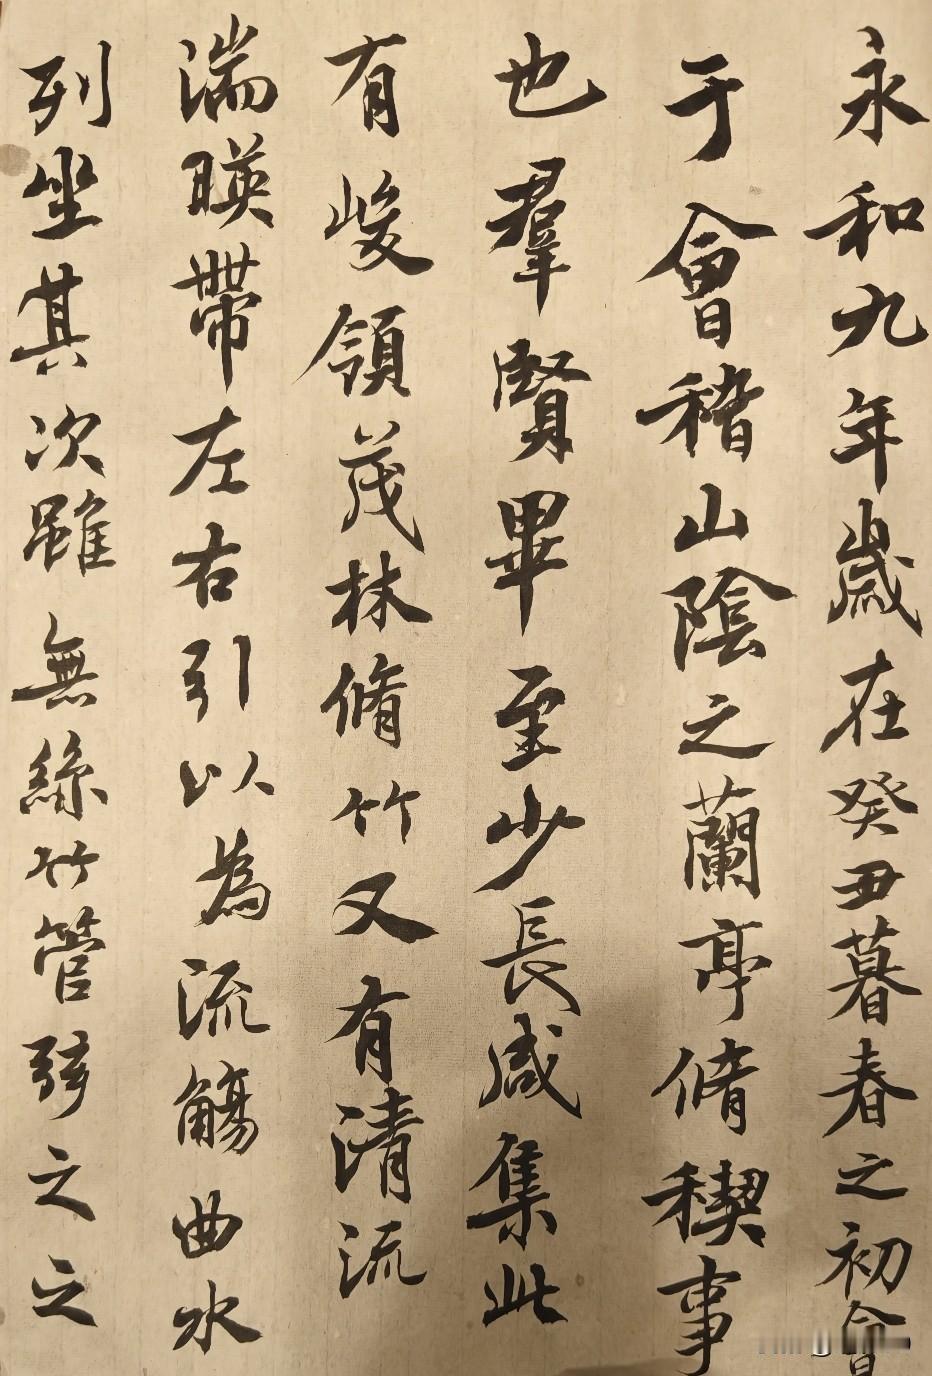 永和九年歲在癸丑暮春之初會
于會稽山陰之蘭亭脩稧事
也羣賢畢至少長咸集此
有峻領茂林脩竹又有清流
湍暎帶左右引以為流觴曲水
列坐其次雖無絲竹管弦之之